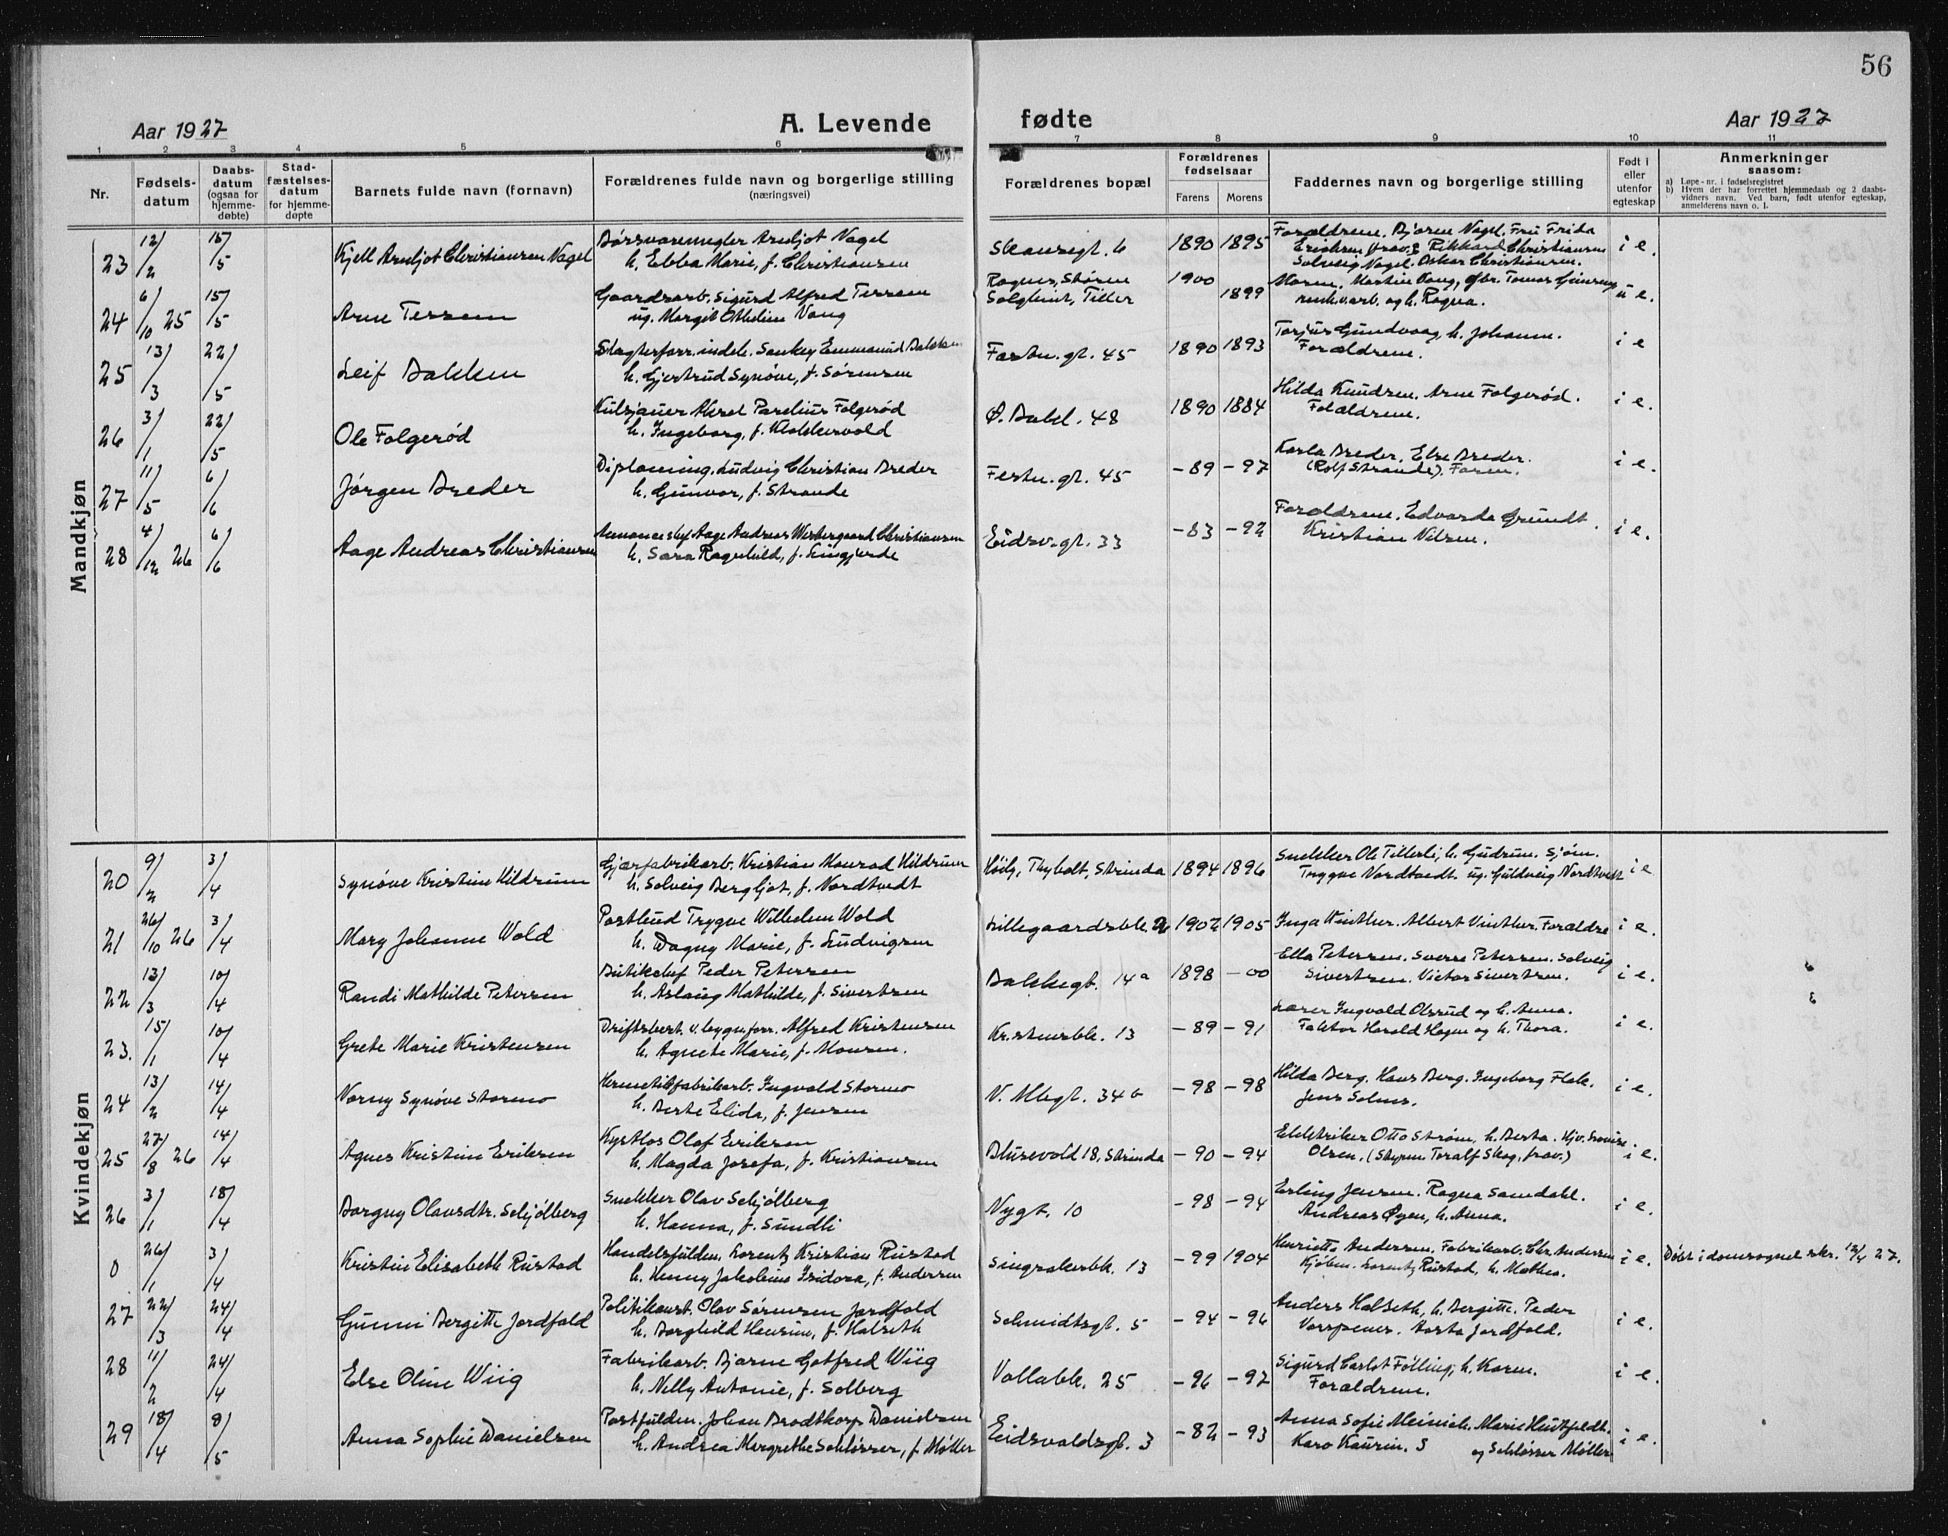 56
Aar 1927 A. Levende fødte Aar 1927
1 2 3 4 5 6 7 8 9 10 11
Nr. Fødsels-datum Daabs-datum (ogsaa for hjemme-døbte) Stad-fæstelses-datum for hjemme-døpte Barnets fulde navn (fornavn) Forældrenes fulde navn og borgerlige stilling (næringsvei) Forældrenes bopæl Forældrenes fødselsaar Farens Morens Faddernes navn og borgerlige stilling Født i eller utenfor egteskap Anmerkninger saasom:
a) Løpe-nr. i fødselsregistret
b) Hvem der har forrettet hjemmedaab og 2 daabs-vidners navn. Ved barn, født utenfor egteskap, anmelderens navn o. l.
Mandkjøn
23 12/2 15/5 Kjell Arnljot Christiansen Nagel Børsvaremegler Arnljot Nagel h. Ebba Marie, f. Christiansen Skansegt. 6 1890 1895 Forældrene. Bjarne Nagel. Fru Frida Erichsen frav. Rikkard Christiansen Solveig Nagel. Oskar Christiansen. i e.
24 6/10 25 15/5 Arne Tessem Gaardsarb. Sigurd Alfred Tessem ug. Margit Othelie Vang Rognes, Støren Solglimt, Tiller 1900 1899 Moren. Martin Vang, og h. Ragna. u e.
25 13/3 22/5 Leif Bakken h. Gjertrud Synøve, f. Sørensen Festn. gt. 45 1890 1893 Torjus Gundvaag, h. Johanne. Forældrene. i e
26 3/1 22/5 Ole Folgerød Kulsjauer Aksel Parelius Folgerød h. Ingeborg, f. Klokkervold Ø. Bakl. 48 1890 1884 Hilda Knudsen. Arne Folgerød. Forældrene. i e.
27 11/5 6/6 Jørgen Breder Diploming. Ludvig Christian Breder h. Gunvor, f. Strande Festn. gt. 45 -89 -97 Karla Breder. Else Breder. (Rolf Strande). Faren. i e.
28 4/12 26 6/6 Aage Andreas Christiansen Annoncechef Aage Andreas Westergaard Christiansen h. Sara Ragnhild, f. Eidsv. gt. 33 -83 -92 Forældrene. Edvarda Grundt. Kristian Nilsen. i e.
Kvindekjøn
20 9/2 3/4 Synøve Kristine Hildrum Gjærfabrikarb. Kristian Monrad Hildrum h. Solveig Bergljot, f. Nordtvedt Thybolt, Strinda 1894 1896 Snekker Ole Tillerli, h. Gudrun. Sjøm. Trygve Nordtvedt. ug. Guldveig Nordtvedt i e
21 26/10 26 3/4 Mary Johanne Wold Postbud Trygve Wilhelm Wold h. Dagny Marie, f. Ludvigsen Lillegaardsbk. 2 1902 1905 Inga Winther. Albert Vinther. Forældre i e.
22 13/3 10/4 Randi Mathilde Petersen Butikchef Peder Petersen h. Aslaug Mathilde, f. Sivertsen Bakkegt. 14a 1898 -00 Ella Petersen. Sverre Petersen. Solveig Sivertsen. Victor Sivertsen. i e.
23. 15/1 10/4 Grete Marie Kristensen Driftsbest. v. bygn.forr. Alfred Kristensen h. Agnete Marie, f. Monsen. Kr.stensbk. 13 -89 -91 Lærer Ingvald Olsrud og h. Anna. Faktor Harald Hagen og h. Thora. i e.
24 13/2 14/4 Norny Synøve Stormo Hermetikfabrikarb. Ingvald Stormo h. Berte Elida, f. Jensen V. Mlegt. 34b -98 -98 Hilda Berg. Hans Berg. Ingeborg Flak. Jens Solnes. i e.
25 27/8 26 14/4 Agnes Kristine Eriksen Kystlos Olaf Eriksen h. Magda Josefa, f. Kristiansen Blusevold 18, Strinda -90 -94 Elektriker Otto Strøm, h. Berta. Hjv. Lovise Olsen. (Styrm Toralf Skog, frav.) i e.
26 3/1 18/4 Borgny Olavsdtr. Schjølberg Snekker Olav Schjølberg h. Hanna, f. Sundli Nygt. 10 -98 -94 Erling Jensen. Ragna Samdahl. Andreas Øyen, h. Anna. i e.
0 26/1 3/4 Kristine Elisabeth Rustad Handelsfuldm. Lorentz Kristian Rustad h. Henny Jakobine Isidora, f. Andersen Singsakerbk. 13 -99 1904 Henriette Andersen. Fabrikarb. Chr. Andersen Kjøbm. Lorentz Rustad, h. Mathea. i e. Døbt i domsognet skr. 12/4 27.
27 22/3 24/4 Gunni Bergitte Jordfald Politikonst. Olav Sørensen Jordfald h. Borghild Hansine, f. Halseth Schmidtsgt. 5 -94 -96 Anders Halseth, h. Bergitte. Peder Vorpenes. Aasta Jordfald. i e.
28 11/2 24/4 Else Oline Wiig Fabrikarb. Bjarne Gotfred Wiig h. Nelly Antonie, f. Solberg Vollabk. 25 -96 -97 Sigurd Følling, h. Karen. Forældrene. i e.
29 18/4 8/5 Anna Sophie Danielsen Postfuldm. Johan Brodtkorp Danielsen h. Andrea Margrethe Schlösser, f. Møller Eidsvoldsgt. 3 -82 -93 Anna Sofie Meinich. Marie Huitfeldt. Karo Kaurin. og Schlösser Møller i e.